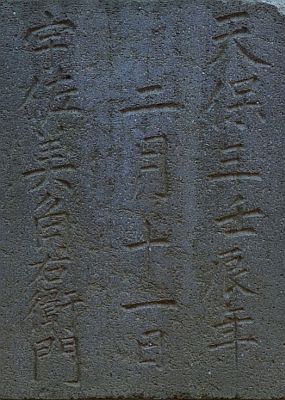 天保三壬辰年
二月十一日
宇佐美角右衛門